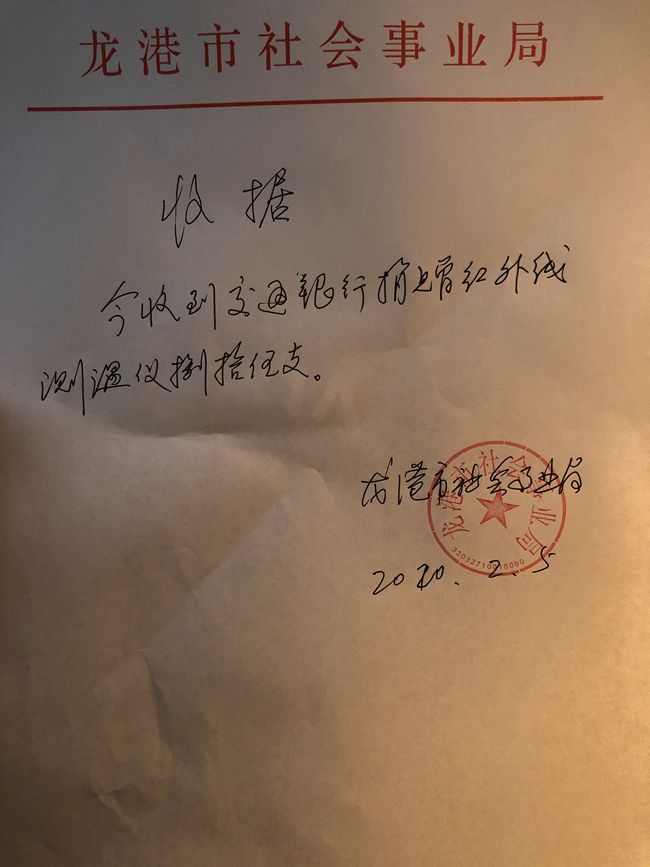 龙港市社会事业局
收据
今收到交通银行捐赠红外线
测温仪捌拾伍支。
龙港市社会事业局
龙港市社会事业局
2020.2.5